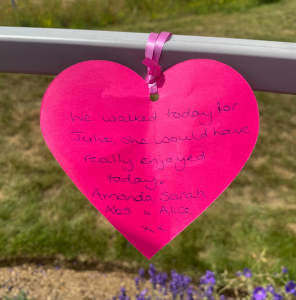 We walked today for
Julie, she would have
really enjoyed
today.
Amanda Sarah
Abs & Alice
x x